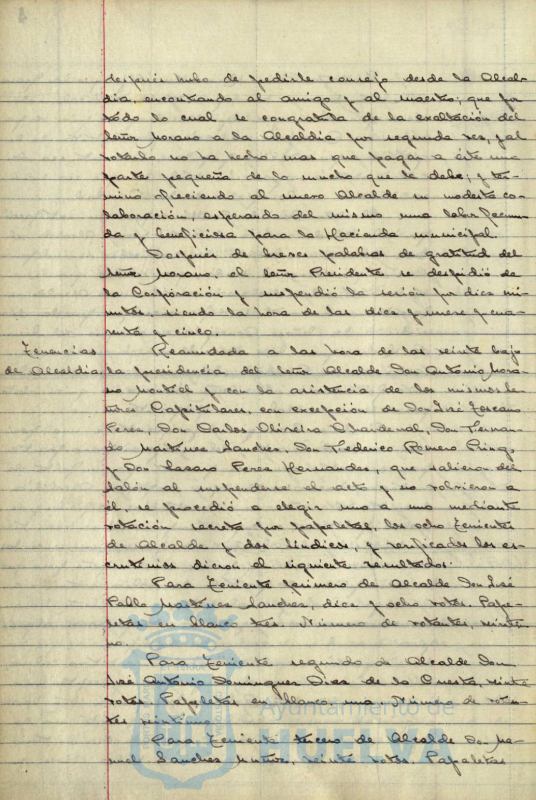 después hubo de pedirle consejo desde la Alcal-
día, encontrando al amigo y al maestro; que por
todo lo cual se congratula de la exaltación del
Señor Morano a la Alcaldía por segunda vez, y al
votarlo no ha hecho mas que pagar a éste una
parte pequeña de lo mucho que le debe; y ter-
minó ofreciendo al nuevo Alcalde su modesta co-
laboración, esperando del mismo una labor fecun-
da y beneficiosa para la Hacienda municipal.
Después de breves palabras de gratitud del
Señor Morano, el Señor Presidente se despidió de
la Corporación y suspendió la sesión por diez mi-
nutos, siendo la hora de las diez y nueve y cua-
renta y cinco.
Tenencias
de Alcaldía
Reanudada a las hora de las veinte bajo
la presidencia del Señor Alcalde Don Antonio Mora-
no Montiel y con la asistencia de los mismos Se-
ñores Capitulares, con excepción de Don José Toscano
Perez, Don Carlos Oliveira Chardenal, Don Fernan-
do Martinez Sanchez, Don Federico Romero
y Don Lazaro Perez Hernandez, que salieron del
salón al suspenderse el acto y no volvieron a
él, se procedió a elegir uno a uno mediante
votación secreta por papeletas, los ocho Tenientes
de Alcalde y dos Síndicos, y verificados los es-
crutinios dieron el siguiente resultado:
Para Teniente primero de Alcalde Don José
Pablo Martinez Sanchez, diez y ocho votos. Pape-
letas en blanco tres. Número de votantes, veintiu-
no.
Para Teniente segundo de Alcalde Don
José Antonio Dominguez Diaz de la Cuesta, veinte
votos. Papeletas en blanco, una. Número de votan-
tes veintiuno.
Para Teniente tercero de Alcalde Don Ma-
nuel Sanchez Muñoz, veinte votos. Papeletas
Ayuntamiento de
HUELVA